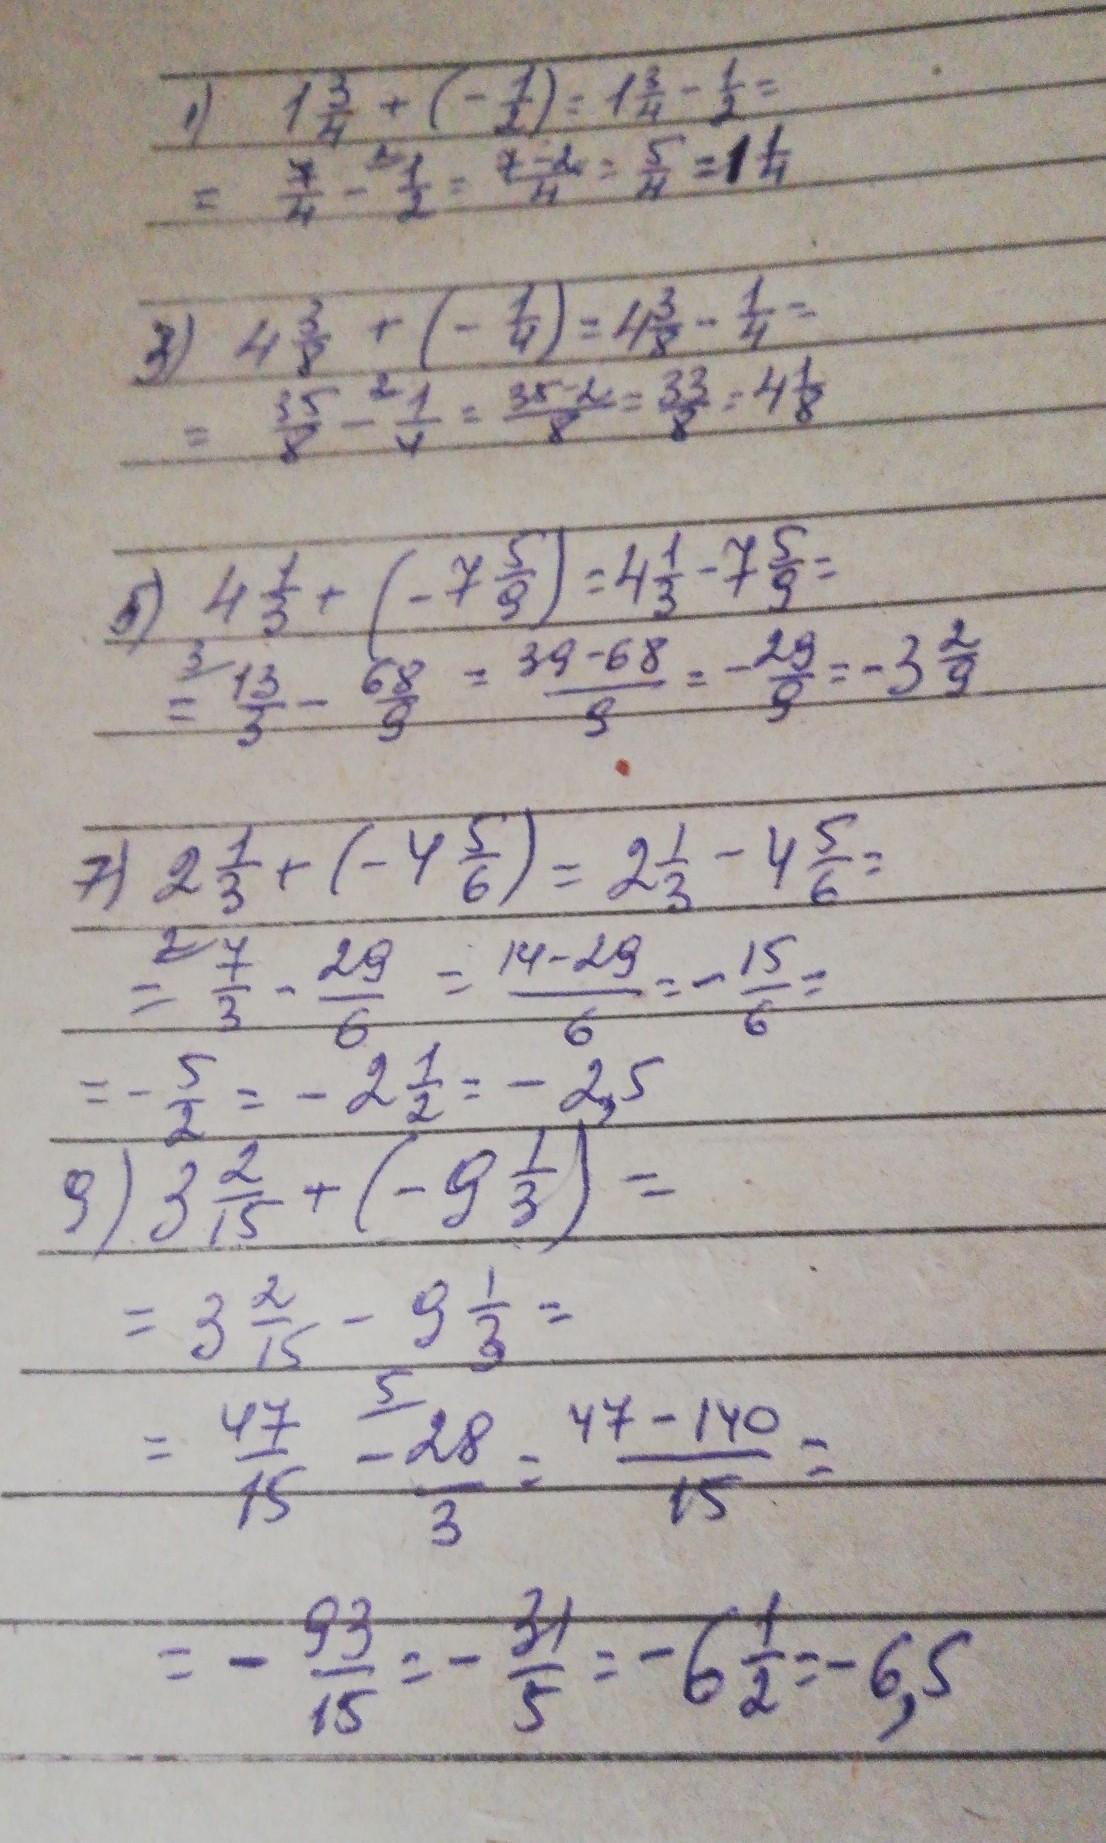 1) 1 3/4 + (- 1/2) = 1 3/4 - 1/2 =
= 7/4 - ²⁄ 1/2 = (7-2)/4 = 5/4 = 1 1/4
3) 4 3/8 + (- 1/4) = 4 3/8 - 1/4 =
= 35/8 - ²⁄ 1/4 = (35-2)/8 = 33/8 = 4 1/8
5) 4 1/3 + (- 7 5/9) = 4 1/3 - 7 5/9 =
= ³⁄ 13/3 - 68/9 = (39-68)/9 = - 29/9 = - 3 2/9
7) 2 1/3 + (- 4 5/6) = 2 1/3 - 4 5/6 =
= ²⁄ 7/3 - 29/6 = (14-29)/6 = - 15/6 =
= - 5/2 = - 2 1/2 = - 2,5
9) 3 2/15 + (- 9 1/3) =
= 3 2/15 - 9 1/3 =
= 47/15 - ⁵⁄ 28/3 = (47-140)/15 =
= - 93/15 = - 31/5 = - 6 1/2 = - 6,5